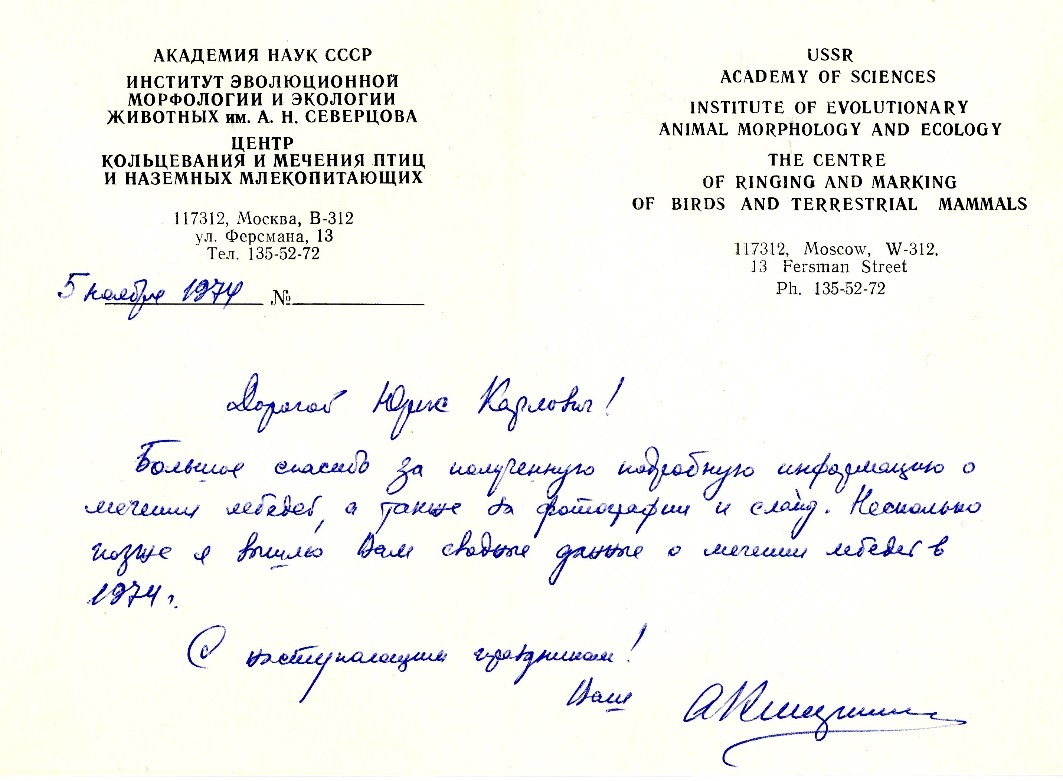 АКАДЕМИЯ НАУК СССР
ИНСТИТУТ ЭВОЛЮЦИОННОЙ
МОРФОЛОГИИ И ЭКОЛОГИИ
ЖИВОТНЫХ им. А. Н. СЕВЕРЦОВА
ЦЕНТР
КОЛЬЦЕВАНИЯ И МЕЧЕНИЯ ПТИЦ
И НАЗЕМНЫХ МЛЕКОПИТАЮЩИХ
117312, Москва, В-312
ул. Ферсмана, 13
Тел. 135-52-72
5 ноября 1974 №
USSR
ACADEMY OF SCIENCES
INSTITUTE OF EVOLUTIONARY
ANIMAL MORPHOLOGY AND ECOLOGY
THE CENTRE
OF RINGING AND MARKING
OF BIRDS AND TERRESTRIAL MAMMALS
117312, Moscow, W-312.
13 Fersman Street
Ph. 135-52-72
Дорогой Юрис Карлович!
Большое спасибо за полученную подробную информацию о
мечении лебедей, а также за фотографии и слайд. Несколько
позже я вышлю Вам сводные данные о мечении лебедей в
1974 г.
С наступающим праздником!
Ваш